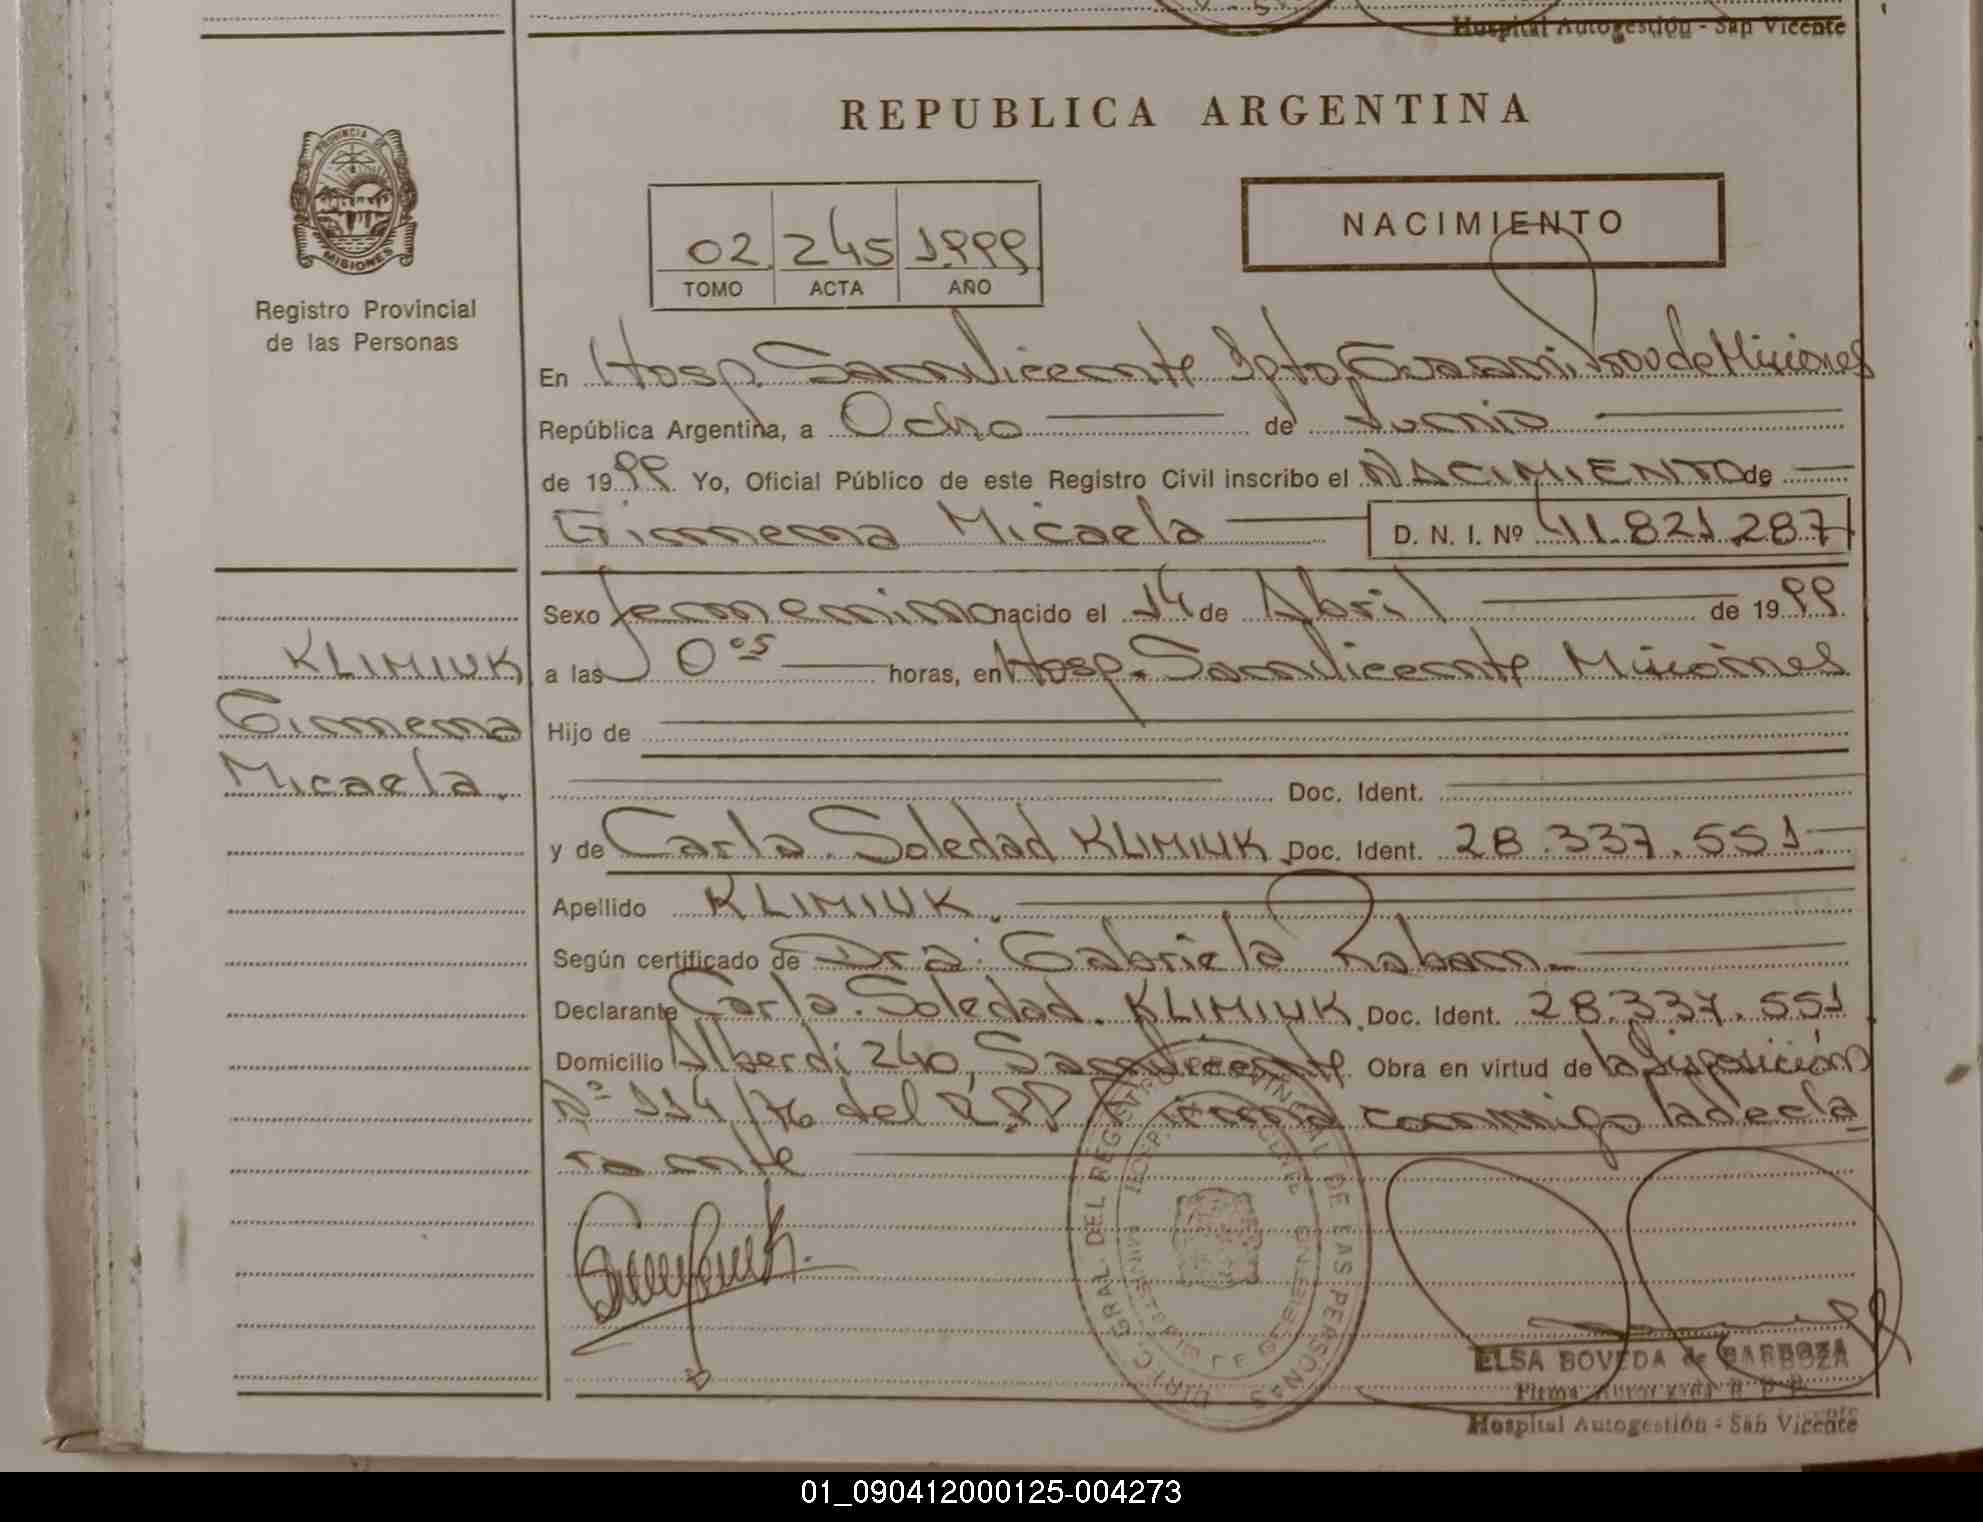 Hospital Autogestión - San Vicente
REPUBLICA ARGENTINA
PROVINCIA DE
MISIONES
Registro Provincial
de las Personas
NACIMIENTO
02 245 1999
TOMO ACTA AÑO
En Hosp. San Vicente Dpto. Guaraní Prov de Misiones
República Argentina, a Ocho de Junio
de 1999 Yo, Oficial Público de este Registro Civil inscribo el NACIMIENTO de
Gimena Micaela D. N. I. Nº 41.821.287
Sexo femenino nacido el 14 de Abril de 1999
a las 0 05 horas, en Hosp. San Vicente Misiones
KLIMIUK
Gimena
Micaela.
Hijo de
Doc. Ident.
y de Carla Soledad KLIMIUK Doc. Ident. 28.337.551
Apellido KLIMIUK.
Según certificado de Dra. Gabriela
Declarante Carla Soledad KLIMIUK. Doc. Ident. 28.337.551
Domicilio Alberdi 240, San Vicente Obra en virtud de la Disposición
Nº 114/76 del R.P.P Firma conmigo la decla
rante
DIREC. GRAL. DEL REGISTRO PROVINCIAL DE LAS PERSONAS
ELSA BOVEDA de BARBOZA
Firma Autorizada R. P. P.
Hospital Autogestión - San Vicente
01_090412000125-004273